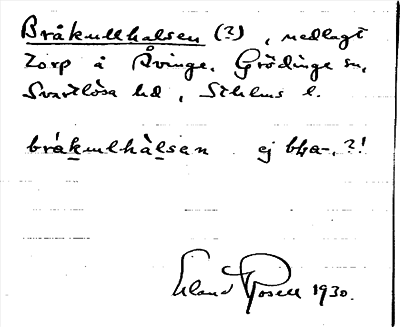 Bråkullhalsen (?), nedlagt
torp å Åvinge, Grödinge sn,
Svartlösa hd, Sthlms l.
bråkulhàlsen ej bβa-, ?!
Erland Rosell 1930.